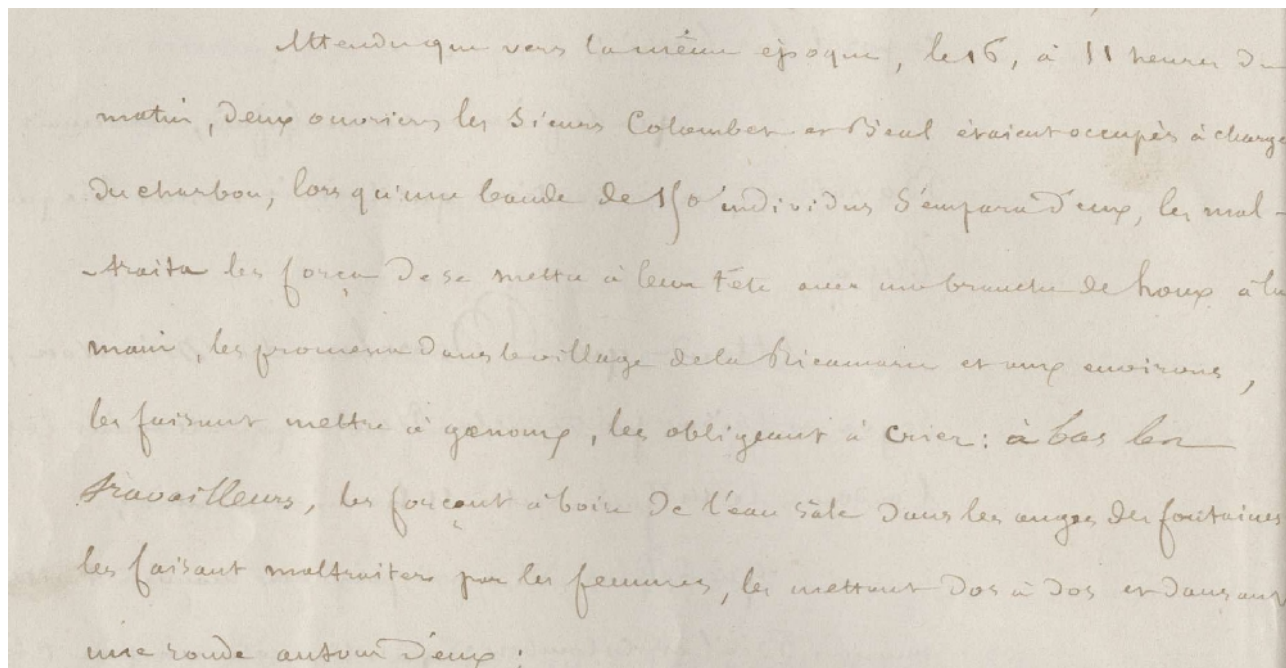 Attendu que vers la même époque, le 16, à 11 heures du
matin, deux ouvriers les Sieurs Colombet et Béal étaient occupés à charge
du charbon, lorsqu'une bande de 150 individus s'empara d'eux, les mal-
traita les força de se mettre à leur tête avec une branche de houx à la
main, les promena dans le village de la Ricamarie et aux environs,
les faisant mettre à genoux, les obligeant à crier: à bas les
travailleurs, les forçant à boire de l'eau sâle dans les auges des fontaines
les faisant maltraiter par les femmes, les mettant dos à dos et dansant
une ronde autour d'eux;